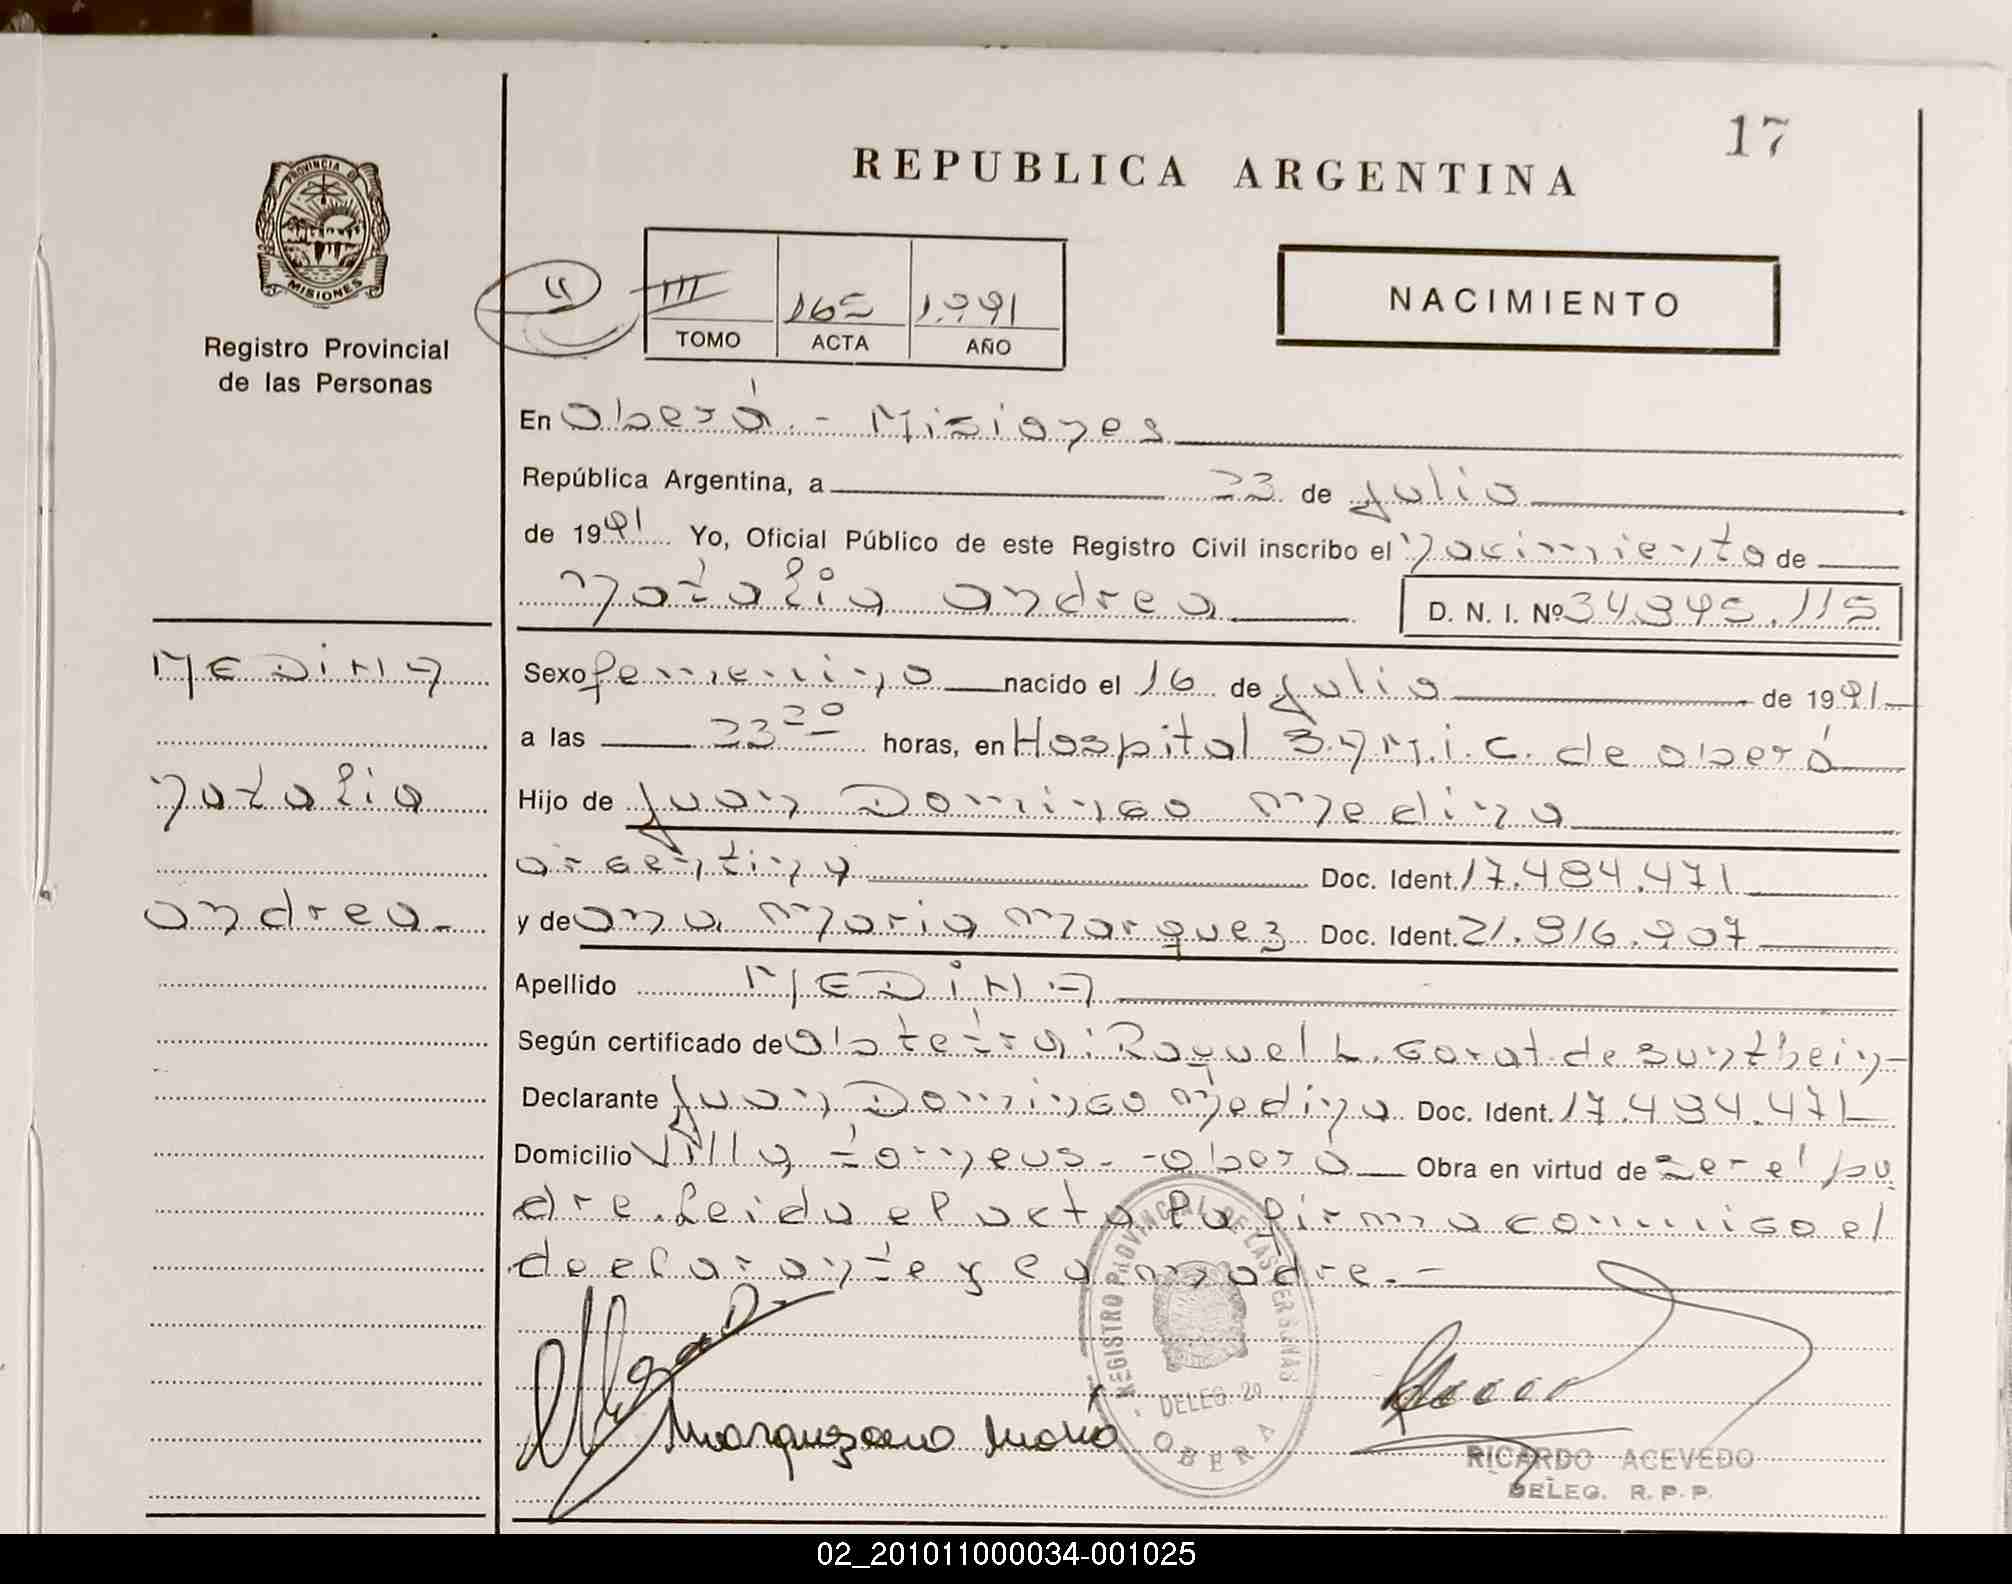 17
REPUBLICA ARGENTINA
PROVINCIA DE
MISIONES
Registro Provincial
de las Personas
NACIMIENTO
II III 165 1.991
TOMO ACTA AÑO
En Oberá. - Misiones
República Argentina, a 23 de julio
de 1991 Yo, Oficial Público de este Registro Civil inscribo el nacimiento de
natalia andrea D. N. I. Nº 34.895.115
MEDINA
natalia
andrea.-
Sexo femenino nacido el 16 de julio de 1991
a las 23 20 horas, en Hospital S.A.M.I.C. de oberá
Hijo de Juan Domingo Medina
argentina Doc. Ident. 17.484.471
y de ana Maria Marquez Doc. Ident. 21.816.907
Apellido MEDINA
Según certificado de obstetra: Raquel L. Garat de
Declarante Juan Domingo Medina Doc. Ident. 17.484.471
Domicilio Villa - oberá Obra en virtud de ser el pa
dre. Leida el acta la firma conmigo el
declarante y la madre.-
REGISTRO PROVINCIAL DE LAS PERSONAS
DELEG. 20
OBERA
RICARDO ACEVEDO
DELEG. R. P. P.
02_201011000034-001025